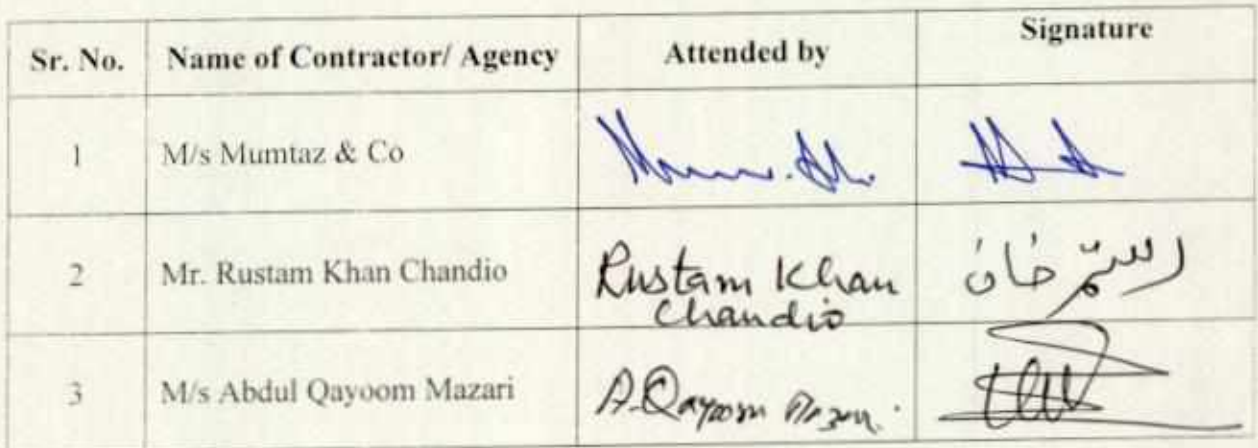 Sr. No. Name of Contractor/ Agency Attended by Signature
1 M/s Mumtaz & Co
2 Mr. Rustam Khan Chandio Rustam Khan رستم خان
Chandio
3 M/s Abdul Qayoom Mazari A. Qayoom